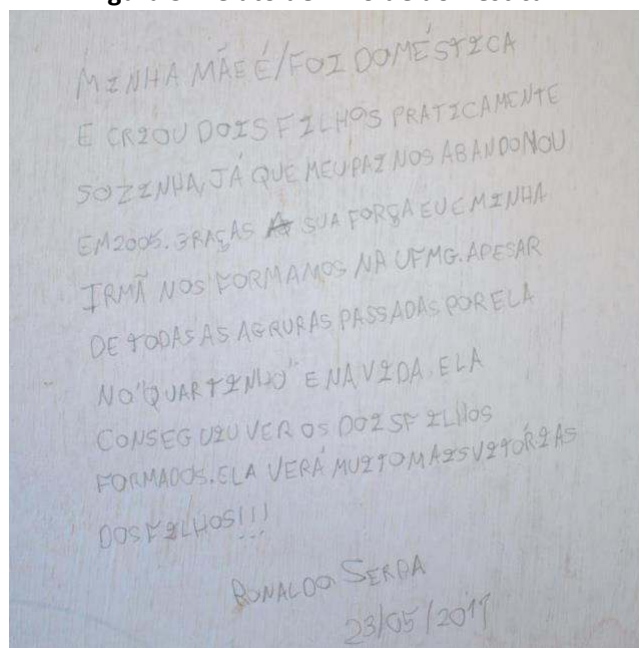 MINHA MÃE É/FOI DOMÉSTICA
E CRIOU DOIS FILHOS PRATICAMENTE
SOZINHA, JÁ QUE MEU PAI NOS ABANDONOU
EM 2005. GRAÇAS A SUA FORÇA EU E MINHA
IRMÃ NOS FORMAMOS NA UFMG. APESAR
DE TODAS AS AGRURAS PASSADAS POR ELA
NO "QUARTINHO" E NA VIDA. ELA
CONSEGUIU VER OS DOIS FILHOS
FORMADOS. ELA VERÁ MUITO MAIS VITÓRIAS
DOS FILHOS!!!
RONALDO
23/05/201